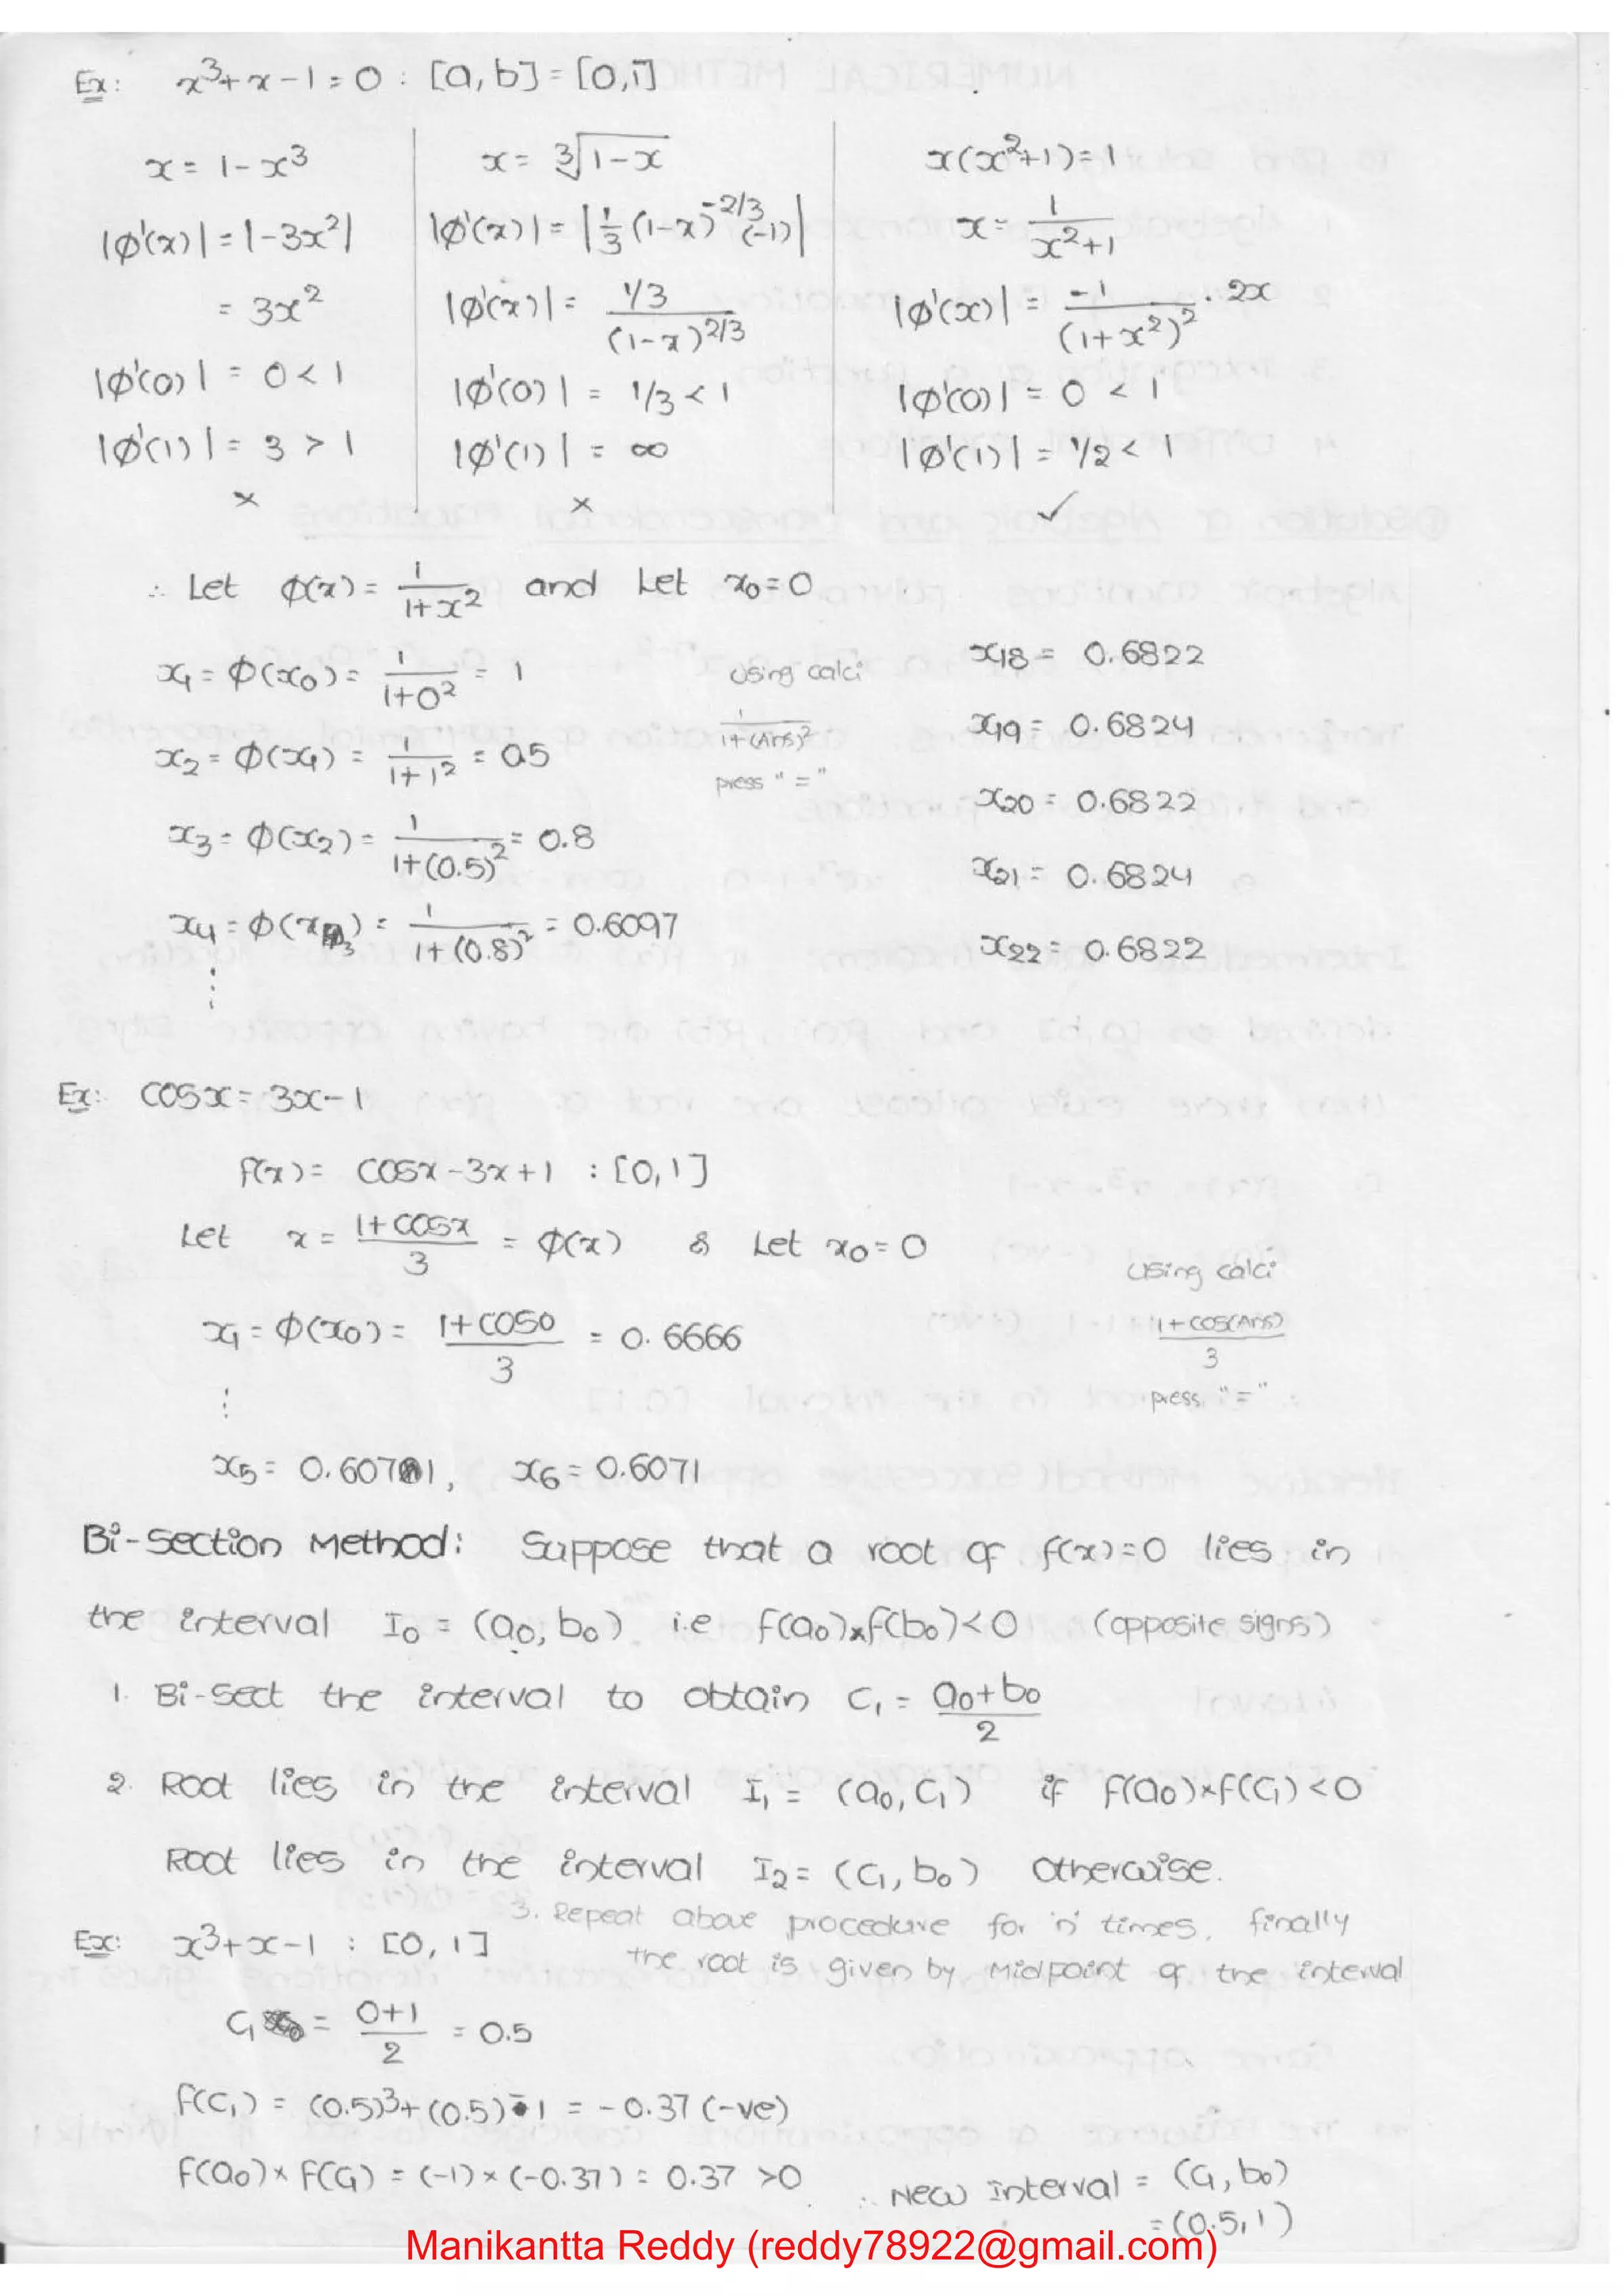 Ex: x³+x-1=0 : [a,b]=[0,1]
x = 1-x³
|φ'(x)| = |-3x²|
= 3x²
|φ'(0)| = 0 < 1
|φ'(1)| = 3 > 1
×
x = ∛(1-x)
|φ'(x)| = |1/3 (1-x)^(-2/3) (-1)|
|φ'(x)| = (1/3)/(1-x)^(2/3)
|φ'(0)| = 1/3 < 1
|φ'(1)| = ∞
×
x(x²+1)=1
x = 1/(x²+1)
|φ'(x)| = -1/(1+x²)² · 2x
|φ'(0)| = 0 < 1
|φ'(1)| = 1/2 < 1
✓
∴ Let φ(x) = 1/(1+x²) and Let x₀=0
x₁ = φ(x₀) = 1/(1+0²) = 1
x₂ = φ(x₁) = 1/(1+1²) = 0.5
x₃ = φ(x₂) = 1/(1+(0.5)²) = 0.8
x₄ = φ(x₃) = 1/(1+(0.8)²) = 0.6097
⋮
Using calci
1/(1+(Ans)²)
press "="
x₁₈ = 0.6822
x₁₉ = 0.6824
x₂₀ = 0.6822
x₂₁ = 0.6824
x₂₂ = 0.6822
Ex: cosx = 3x-1
f(x) = cosx-3x+1 : [0,1]
Let x = (1+cosx)/3 = φ(x) & Let x₀=0
x₁ = φ(x₀) = (1+cos0)/3 = 0.6666
⋮
Using calci
(1+cos(Ans))/3
press "="
x₅ = 0.6071, x₆ = 0.6071
Bi-Section Method: Suppose that a root of f(x)=0 lies in
the interval I₀ = (a₀, b₀) i.e f(a₀)×f(b₀)<0 (opposite signs)
1. Bi-sect the interval to obtain c₁ = (a₀+b₀)/2
2. Root lies in the interval I₁ = (a₀, c₁) if f(a₀)×f(c₁)<0
Root lies in the interval I₂ = (c₁, b₀) otherwise.
3. Repeat above procedure for 'n' times, finally
the root is given by Midpoint of the interval
Ex: x³+x-1 : [0, 1]
c₁ = (0+1)/2 = 0.5
f(c₁) = (0.5)³+(0.5)-1 = -0.37 (-ve)
f(a₀)× f(c₁) = (-1)×(-0.37) = 0.37 >0
∴ New Interval = (c₁, b₀)
= (0.5, 1)
Manikantta Reddy (reddy78922@gmail.com)